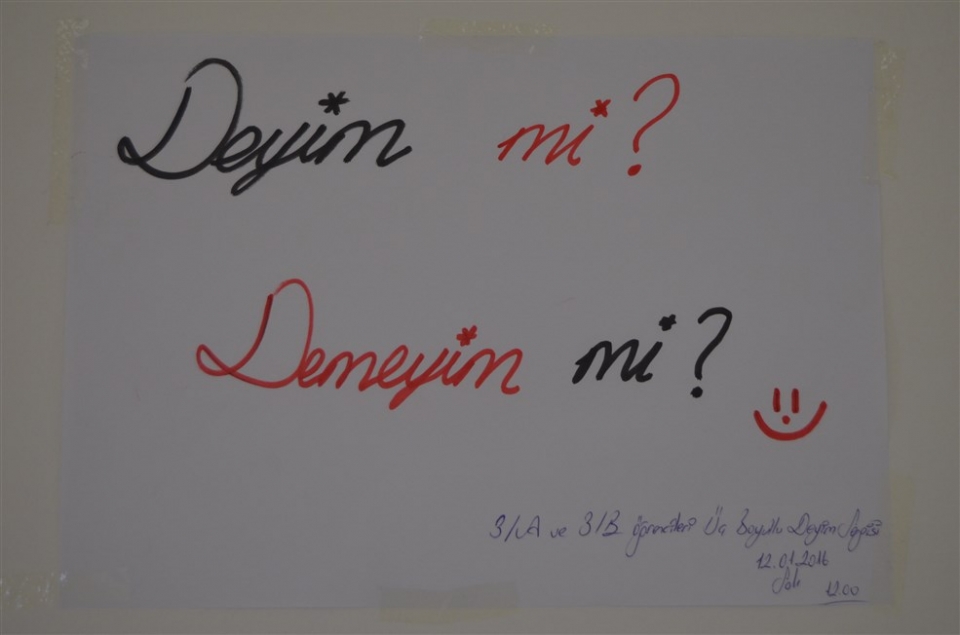 Deyim mi?
Demeyim mi?
3/A ve 3/B öğrencileri Üç Boyutlu Deyim Sergisi
12.01.2016
Salı
12.00